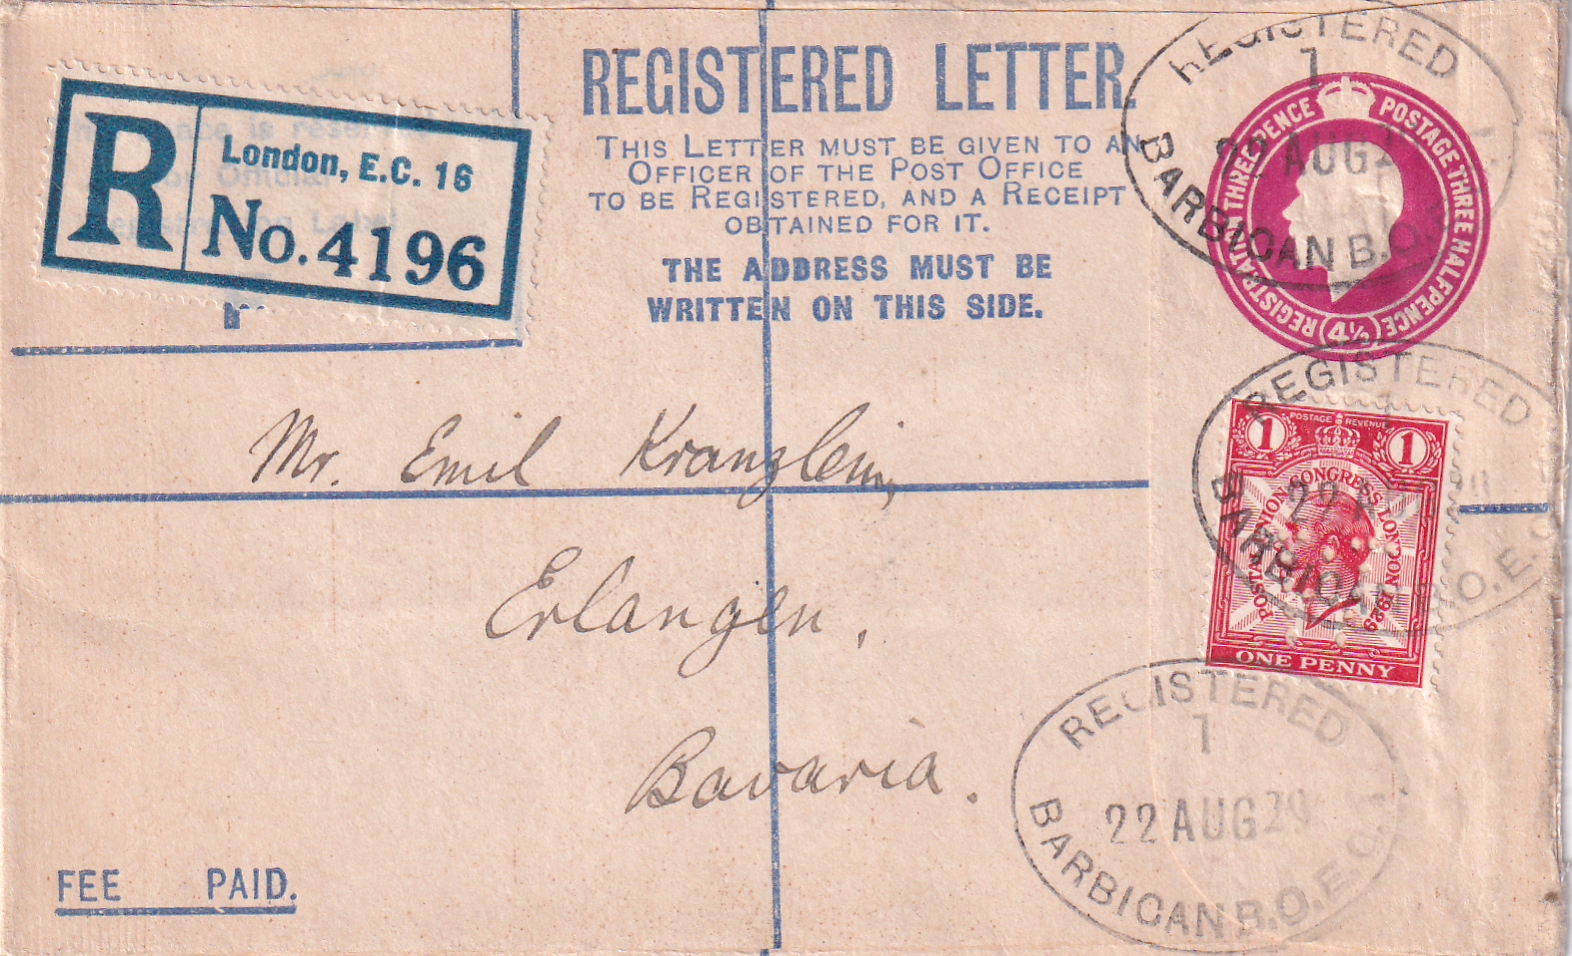 R
London, E.C. 16
No. 4196
REGISTERED LETTER.
THIS LETTER MUST BE GIVEN TO AN
OFFICER OF THE POST OFFICE
TO BE REGISTERED, AND A RECEIPT
OBTAINED FOR IT.
THE ADDRESS MUST BE
WRITTEN ON THIS SIDE.
REGISTERED
1
22 AUG 29
BARBICAN B.O.
POSTAGE THREE HALFPENCE
REGISTRATION THREE PENCE
4½
REGISTERED
BARBICAN B.O.E.C.
POSTAGE REVENUE
1 1
POSTAL UNION CONGRESS LONDON 1929
ONE PENNY
Mr. Emil Kranzlein,
Erlangen,
Bavaria.
REGISTERED
1
22 AUG 29
BARBICAN B.O.E.C.1
FEE PAID.